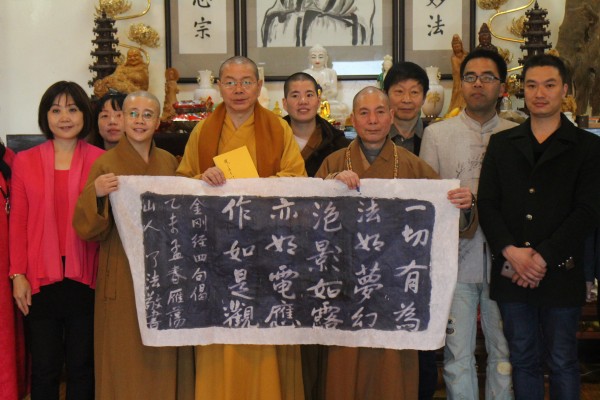 妙法
一切有為
法如夢幻
泡影如露
亦如電應
作如是觀
金剛經四句偈
乙未孟春雁蕩
山人 了法敬書